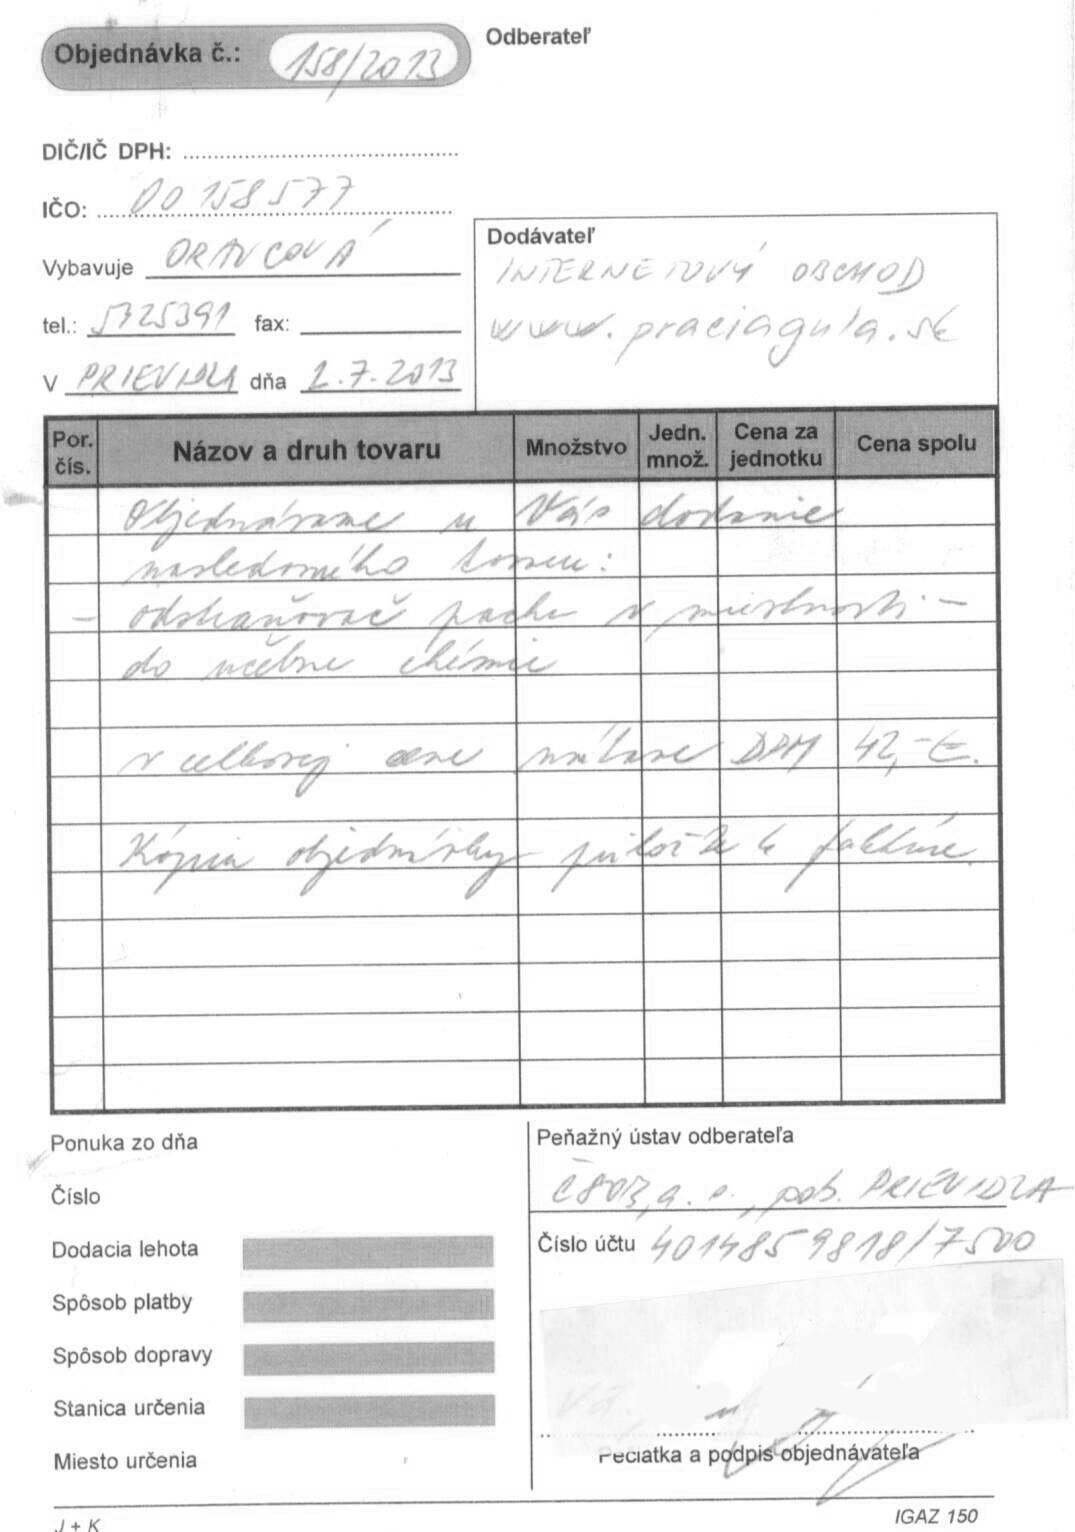 Objednávka č.: 158/2013
Odberateľ
DIČ/IČ DPH:
IČO: 00158577
Vybavuje ORAVCOVÁ
tel.: 5425391 fax:
V PRIEVIDZA dňa 2.7.2013
Dodávateľ
INTERNETOVÝ OBCHOD
www.praciagula.sk
Por. čís. Názov a druh tovaru Množstvo Jedn. množ. Cena za jednotku Cena spolu
Objednávame u Vás dodanie
nasledovného tovaru:
- odstraňovač pachu v miestnosti -
do učebne chémie
v celkovej cene vrátane DPH 42,-€.
Kópiu objednávky priložte k faktúre.
Ponuka zo dňa
Číslo
Dodacia lehota
Spôsob platby
Spôsob dopravy
Stanica určenia
Miesto určenia
Peňažný ústav odberateľa
ČSOB, a.s., pob. PRIEVIDZA
Číslo účtu 4014859818/7500
Pečiatka a podpis objednávateľa
J + K
IGAZ 150